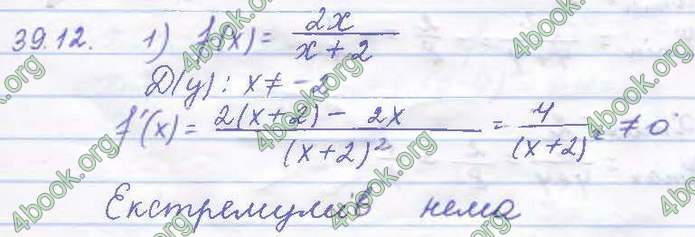 39.12. 1) f(x) = 2x / (x + 2)
D(y): x ≠ -2
f'(x) = (2(x+2) - 2x) / (x+2)² = 4 / (x+2)² ≠ 0
Екстремумів нема
4book.org
4book.org
4book.org
4book.org
4book.org
4book.org
4book.org